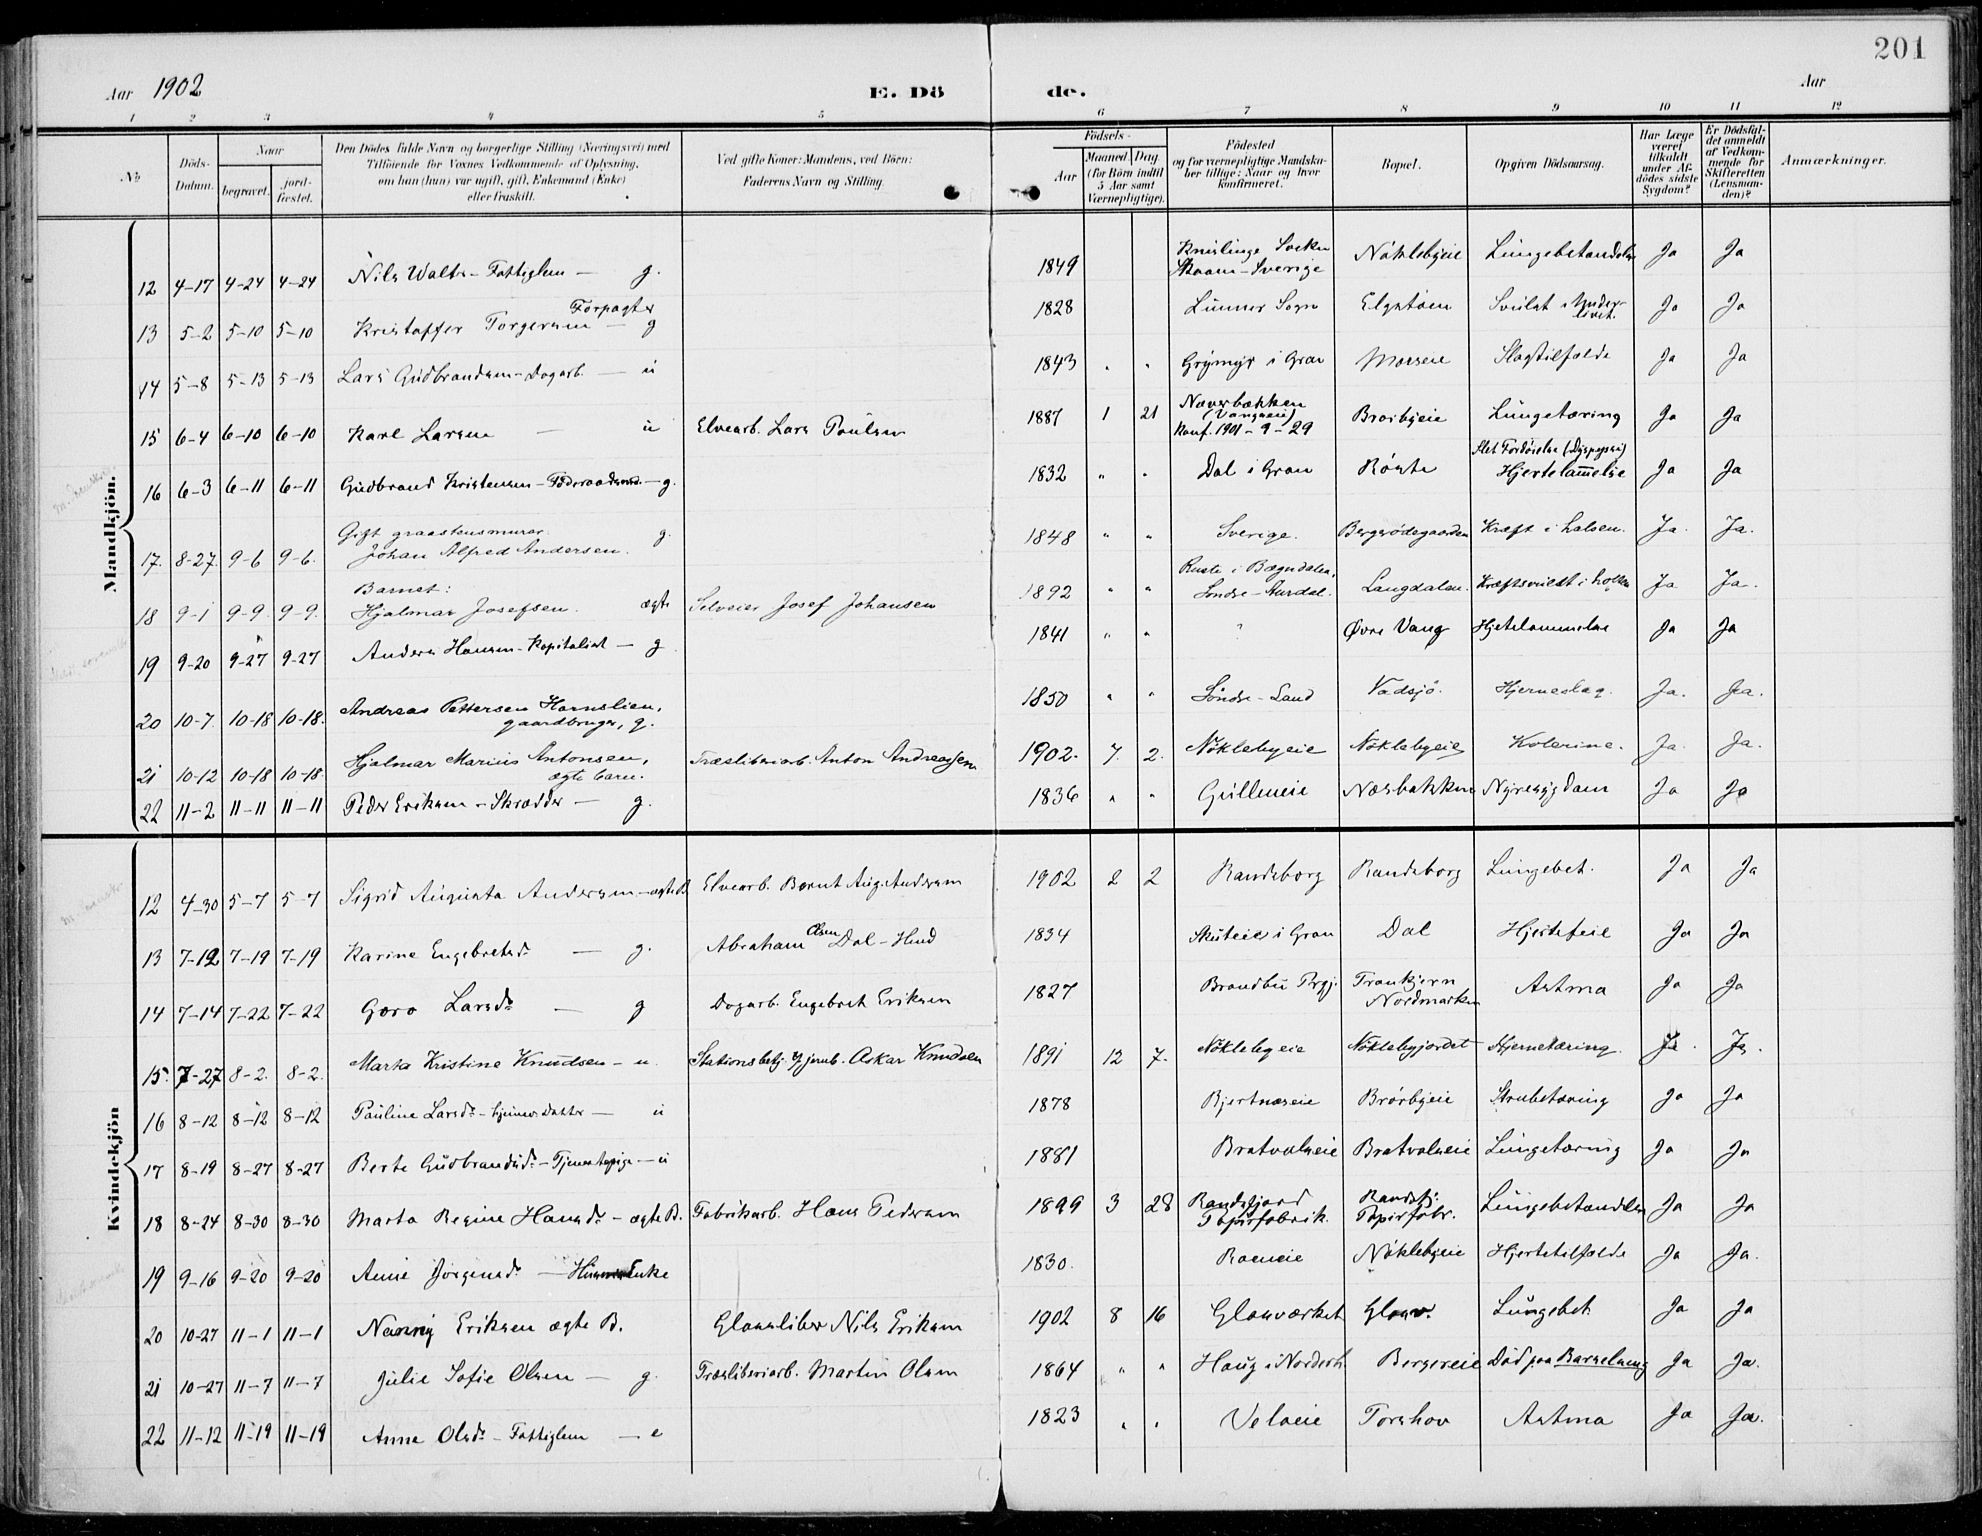 201
Aar 1902
E. Dö de.
Aar
1 2 3 4 5 6 7 8 9 10 11 12
№
Döds-Datum.
Naar
begravet.
jord-fæstet.
Den Dödes fulde Navn og borgerlige Stilling (Næringsvei) med
Tilföiende for Voxnes Vedkommende af Oplysning,
om han (hun) var ugift, gift, Enkemand (Enke)
eller fraskilt.
Ved gifte Koner: Mandens, ved Börn:
Faderens Navn og Stilling.
Födsels-
Aar
Maaned. Dag.
(for Börn indtil
5 Aar samt
Værnepligtige).
Födested
og for værnepligtige Mandska-
ber tillige: Naar og hvor
konfirmeret.
Bopæl.
Opgiven Dödsaarsag.
Har Læge
været
tilkaldt
under Af-
dödes sidste
Sygdom?
Er Dödsfal-
det anmeldt
af Vedkom-
mende for
Skifteretten
(Lensman-
den)?
Anmærkninger.
Mandkjön.
12 4-17 4-24 4-24 Nils Walter - Fattiglem - g. 1849 Socken Skaane - Sverige Nöklebyeie Lungebetændelse Ja Ja
13 5-2 5-10 5-10 Kristoffer Torgersen Forpagter - g 1828 Lunner Sogn Elgstöen Svulst i Under-livet. Ja Ja
14 5-8 5-13 5-13 Lars Gudbrandsen - Dagarb. - u 1843 " " Grymyr i Gran Morseie Slagtilfælde Ja Ja
15 6-4 6-10 6-10 Karl Larsen - u Elvearb. Lars Paulsen 1887 1 21 Næverbækken (Vangseie) Konf. 1901-9-29 Brorbyeie Lungetæring Ja Ja
16 6-3 6-11 6-11 Gudbrand Kristensen - Föderaadsmd. - g. 1832 " " Dal i Gran Röste Slet Fordöielse (Dyspepsi) Hjertelammelse Ja Ja
17. 8-27. 9-6 9-6. Gift graastensmurer Johan Alfred Andersen. g. 1848 " " Sverige. Bergerödegaarden Kræft i halsen. Ja. Ja.
18 9-1 9-9. 9-9. Barnet: Hjalmar Josefsen. ægte Selveier Josef Johansen 1892 " " Ruste i Bægndalen, Söndre-Aurdal. Langdalen. Kræftsvulst i hoften Ja Ja.
19 9-20 9-27 9-27 Anders Hansen - Kapitalist - g 1841 " " ? Øvre Vang Hjertelammelse Ja Ja
20 10-7. 10-18 10-18. Andreas Pettersen Hornslien, gaardbruger, g. 1850 " " Söndre-Land Vadsjö. Hjerneslag. Ja. Ja.
21 10-12 10-18 10-18. Hjalmar Marius Antonsen, ægte barn. Træsliberiarb. Anton Andreassen 1902. 7. 2. Nöklebyeie Nöklebyeie Kolerine. Ja. Ja.
22 11-2 11-11 11-11 Peder Eriksen - Skrædder - g. 1836 " " Gulleneie Næsbakken Nyresygdom Ja Ja
Kvindekjön
12 4-30 5-7 5-7 Sigrid Augusta Andersen - ægte B Elvearb. Bernt Aug. Andersen 1902 2 2 Randsborg Randsborg Lungebet. Ja Ja
13 7-12 7-19 7-19 Karine Engebretsdr - g. Abraham Olsen Dal - Hmd 1834 Skuteie i Gran Dal Hjertefeil Ja Ja
14 7-14 7-22 7-22 Goro Larsdr - g Dagarb. Engebret Eriksen 1827 Brandbu Prgj. Trantjern Nordmarken Astma Ja Ja
15. 7-27 8-2. 8-2. Marta Kristine Knudsen - u. Stationsbetj. v/ jernb. Oskar Knudsen 1891 12 7. Nöklebyeie Nöklebyjordet Hjernetæring. Ja. Ja.
16 8-12 8-12 8-12 Pauline Larsdr - hjemmev. Datter - u 1878 Bjertnæseie Brörbyeie Strubetæring Ja Ja
17 8-19 8-27 8-27 Berte Gudbrandsdr - Tjenestepige - u 1881 Bratvalseie Bratvalseie Lungetæring Ja Ja
18 8-24 8-30 8-30 Marta Regine Hansdr - ægte B. Fabrikarb. Hans Pedersen 1899 3 28 Randsfjord Papirfabrik. Randsfj. Papirfabr. Lungebetændelse Ja Ja
19 9-16 9-20 9-20 Anne Jörgensdr - Enke 1830. Roeneie Nöklebyeie Hjertetilfælde Ja Ja.
20 10-27 11-1 11-1 Nanny Eriksen ægte B. Glassliber Nils Eriksen 1902 8 16 Glasværket Glasv. Lungebet. Ja Ja
21 10-27 11-7 11-7 Julie Sofie Olsen - g. Træsliberiarb. Martin Olsen 1864 " " Haug i Norderh. Bergereie Död paa Barselseng Ja Ja.
22 11-12 11-19 11-19 Anne Olsdr - Fattiglem - e 1823 " " Velseie Torshov Astma Ja Ja.